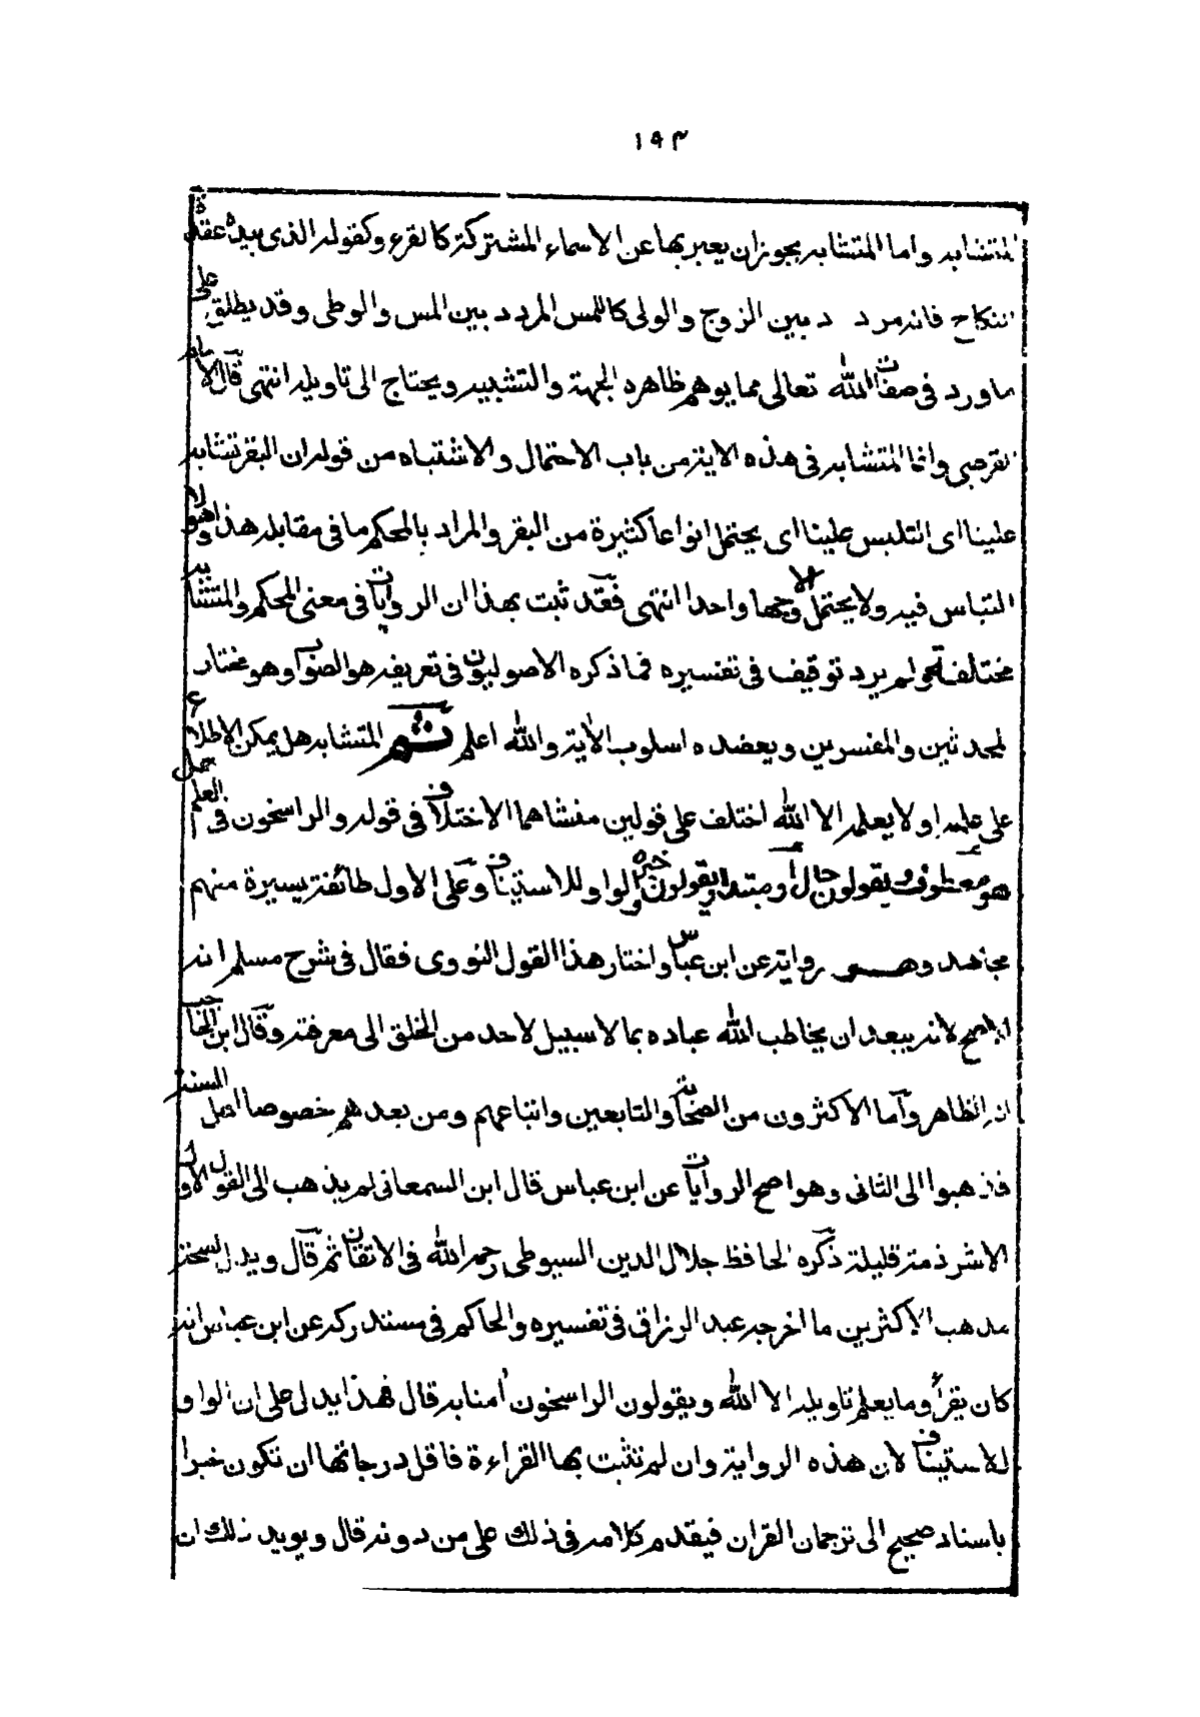 ١٩٣
المتشابه واما المتشابه يجوز ان يعبر بها عن الاسماء المشتركة كالقرء وكقوله الذى بيده عقدة
النكاح فانه مردد بين الزوج والولى كاللمس المردد بين المس والوطى وقد يطلق على
ماورد فى صفات الله تعالى مما يوهم ظاهره الجهة والتشبيه ويحتاج الى تاويله انتهى قال الامام
القرطبى وانما المتشابه فى هذه الاية من باب الاحتمال والاشتباه من قوله ان البقر تشابه
علينا اى التلبس علينا اى يحتمل انواعا كثيرة من البقر والمراد بالمحكم ما فى مقابله هذا وهو لا
التباس فيه ولا يحتمل الا وجها واحدا انتهى فقد ثبت بهذا ان الروايات فى معنى المحكم والمتشابه
مختلفة ولم يرد توقيف فى تفسيره فما ذكره الاصوليون فى تعريفه هو الصواب وهو مختار
المحدثين والمفسرين ويعضده اسلوب الاية والله اعلم ثم المتشابه هل يمكن الاطلاع
على علمه او لا يعلمه الا الله اختلف على قولين منشاهما الاختلاف فى قوله والراسخون فى العلم هل
هو معطوف ويقولون حال او مبتدا ويقولون خبره والواو للاستيناف وعلى الاول طائفة يسيرة منهم
مجاهد وهو رواية عن ابن عباس واختار هذا القول النووى فقال فى شرح مسلم انه
الاصح لانه يبعد ان يخاطب الله عباده بما لا سبيل لاحد من الخلق الى معرفته وقال ابن الحاجب
انه الظاهر وآما الاكثرون من الصحابة والتابعين واتباعهم ومن بعدهم خصوصا اهل السنة
فذهبوا الى الثانى وهو اصح الروايات عن ابن عباس قال ابن السمعانى لم يذهب الى القول الاول
الا شرذمة قليلة ذكره الحافظ جلال الدين السيوطى رحمه الله فى الاتقان ثم قال ويدل لصحة
مذهب الاكثرين ما اخرجه عبد الرزاق فى تفسيره والحاكم فى مستدركه عن ابن عباس انه
كان يقرأ وما يعلم تاويله الا الله ويقولون الراسخون امنا به قال فهذا يدل على ان الواو
للاستيناف لان هذه الرواية وان لم تثبت بها القراءة فاقل درجاتها ان تكون خبرا
باسناد صحيح الى ترجمان القران فيقدم كلامه فى ذلك على من دونه قال ويويد ذلك ان